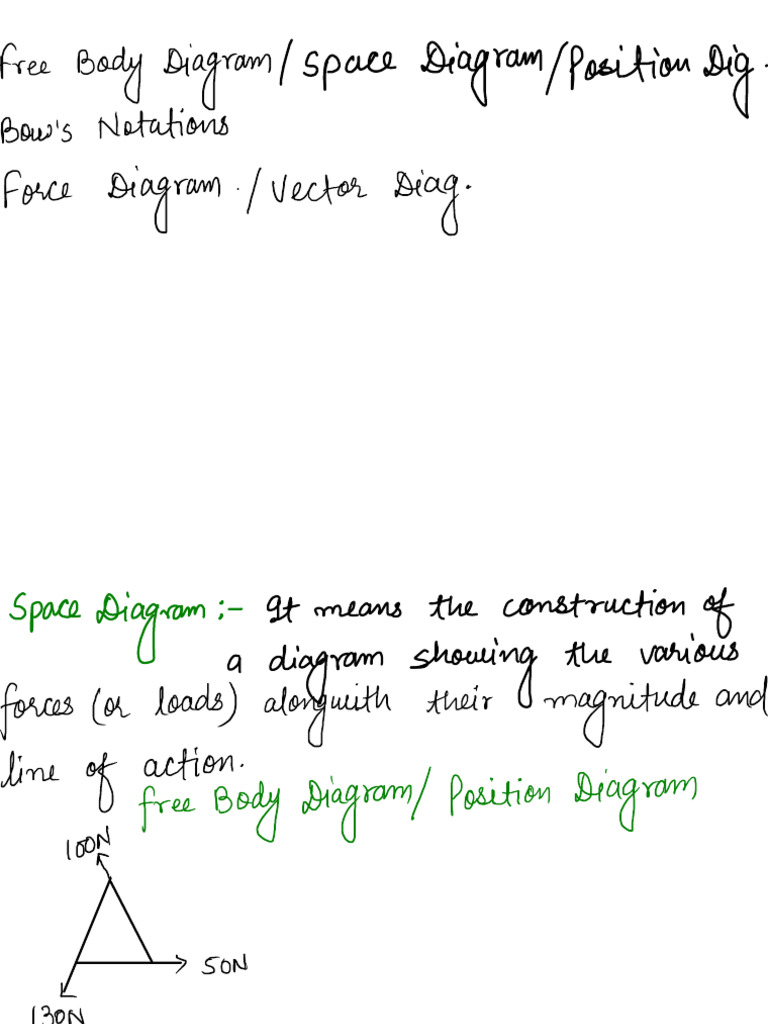 Free Body Diagram/Space Diagram/Position Dig.
Bow's Notations
Force Diagram./Vector Diag.
Space Diagram :- It means the construction of
a diagram showing the various
forces (or loads) alongwith their magnitude and
line of action.
Free Body Diagram/ Position Diagram
100N
50N
130N